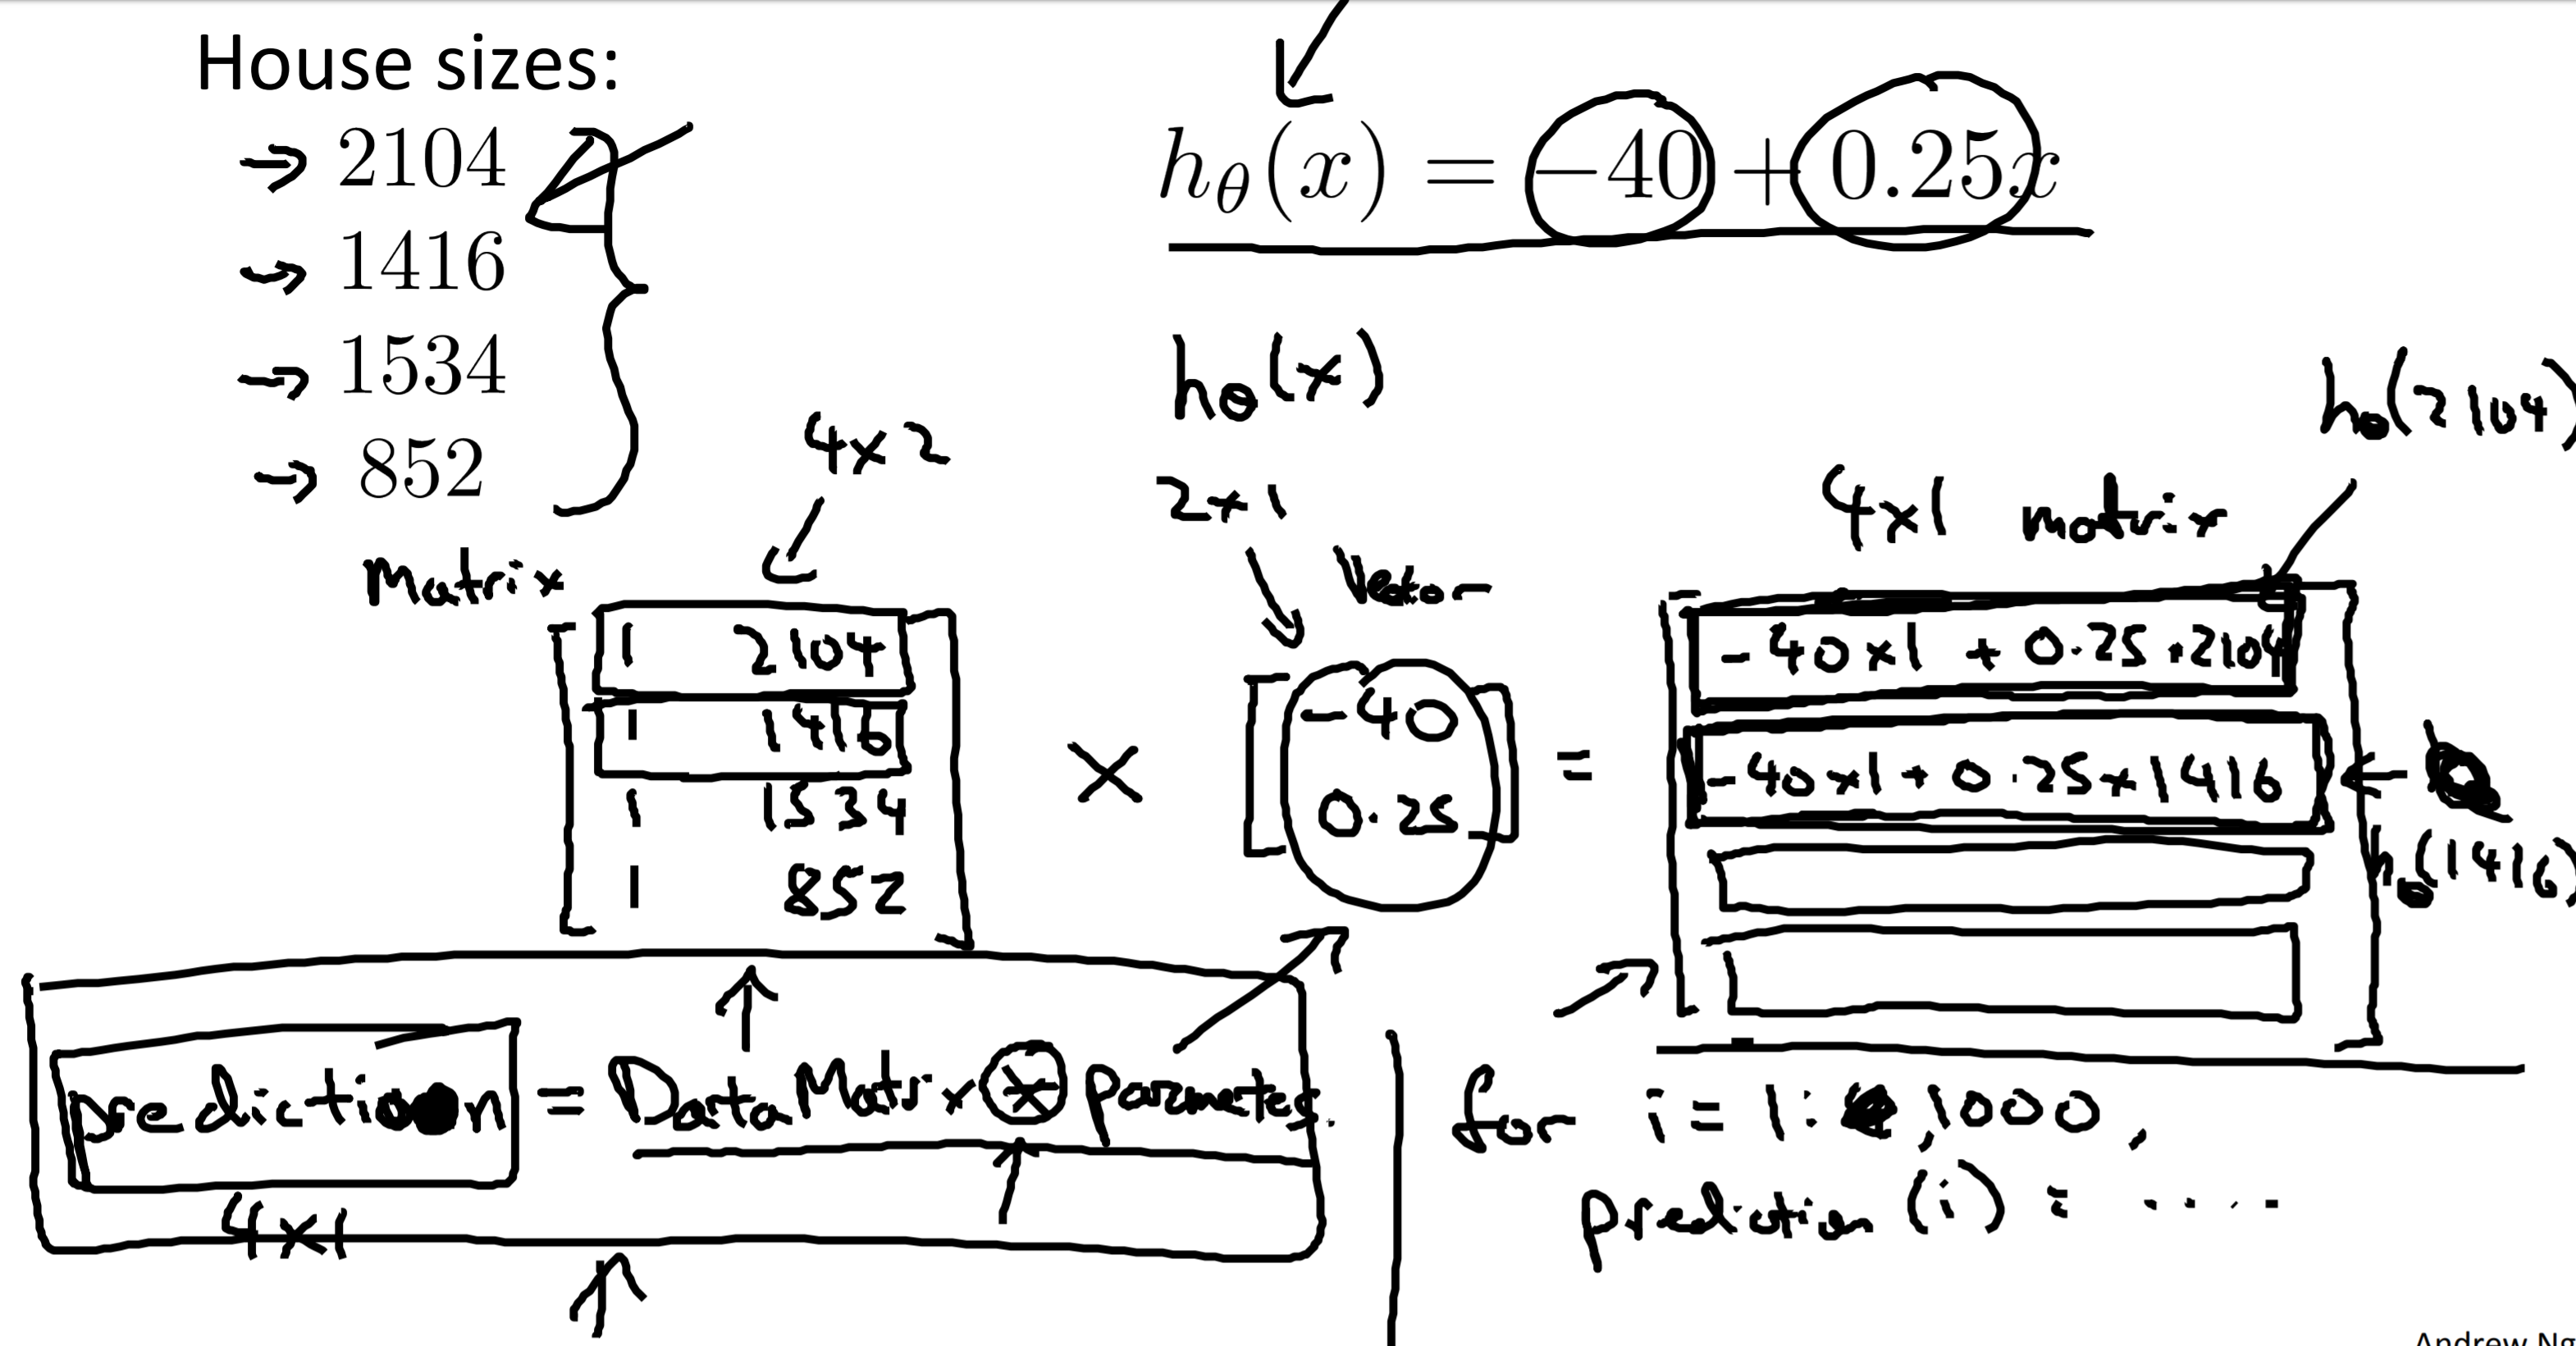 House sizes:
2104
1416
1534
852
hθ(x) = −40 + 0.25x
hθ(x)
hθ(2104)
4x2
2x1
4x1 matrix
Matrix
Vector
1 2104
1 1416
1 1534
1 852
×
-40
0.25
=
-40x1 + 0.25*2104
-40x1 + 0.25x1416
hθ(1416)
prediction = Data Matrix * parameters.
4x1
for i = 1: ,1000,
prediction (i) = ....
Andrew Ng